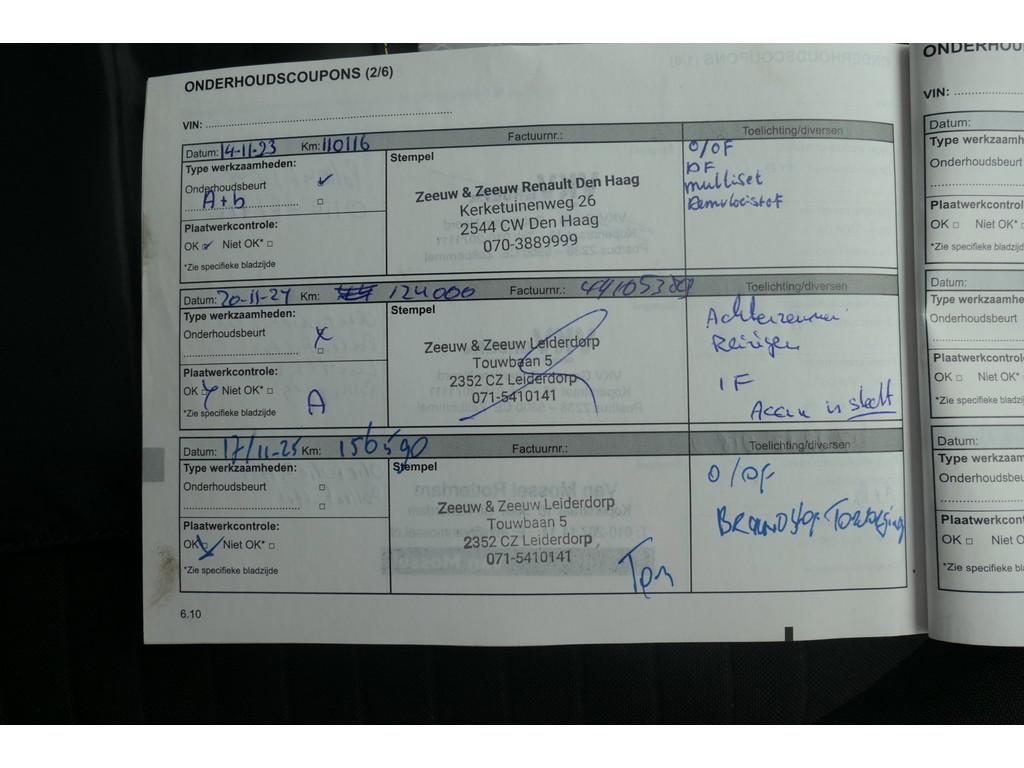 ONDERHOUDSCOUPONS (2/6)
VIN:
Datum: 14-11-23 Km: 110116 Factuurnr.: Toelichting/diversen
Type werkzaamheden:
Onderhoudsbeurt
A+b
Plaatwerkcontrole:
OK Niet OK*
*Zie specifieke bladzijde
Stempel
Zeeuw & Zeeuw Renault Den Haag
Kerketuinenweg 26
2544 CW Den Haag
070-3889999
O/OF
PF
multiset
Remvloeistof
Datum: 20-11-24 Km: 124000 Factuurnr.: Toelichting/diversen
Type werkzaamheden:
Onderhoudsbeurt
Plaatwerkcontrole:
OK Niet OK*
*Zie specifieke bladzijde
A
Stempel
Zeeuw & Zeeuw Leiderdorp
Touwbaan 5
2352 CZ Leiderdorp
071-5410141
Achterremmen
Reinigen
IF
Accu is slecht
Datum: 17/11-25 Km: 156590 Factuurnr.: Toelichting/diversen
Type werkzaamheden:
Onderhoudsbeurt
Plaatwerkcontrole:
OK Niet OK*
*Zie specifieke bladzijde
Stempel
Zeeuw & Zeeuw Leiderdorp
Touwbaan 5
2352 CZ Leiderdorp
071-5410141
O/OF
6.10
ONDERHOU
VIN:
Datum:
Type werkzaam
Onderhoudsbeu
Plaatwerkcontrol
OK Niet OK*
*Zie specifieke bladzijd
Datum:
Type werkzaamhe
Onderhoudsbeurt
Plaatwerkcontrole
OK Niet OK*
*Zie specifieke bladz
Datum:
Type werkzaam
Onderhoudsbeu
Plaatwerkcont
OK Niet O
*Zie specifieke bl